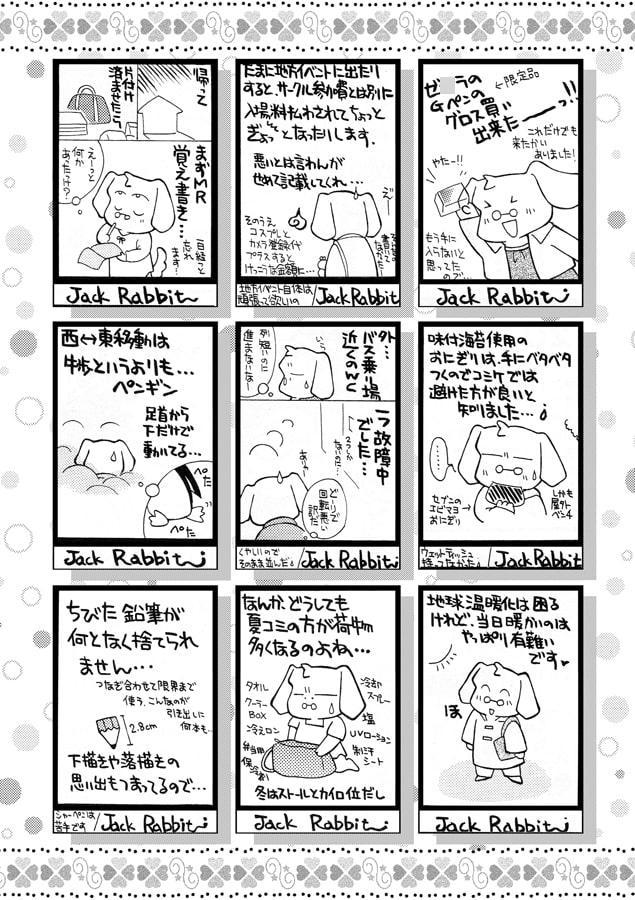 ゼ
ラの
Gペンの
グロス買い
出来たーーっ!!
←限定品
これだけでも
来たかい
ありました!
やたー!!
もう手に
入らないと
思ってた
ので…
Jack Rabbit
たまに地方イベントに出たり
すると、サークル参加費とは別に
入場料払わされてちょっと
ぎょっとなったりします。
悪いとは言わんが
せめて記載してくれ…
え゛ー
そのうえ
コスプレと
カメラ登録代
プラスすると
けっこうな金額に…
地方イベント自体は
頑張って欲しいの
Jack Rabbit
帰って
片付け
済ませたら
まずMR
覚え書き…
えーっと
何か
あったっけ?
Jack Rabbit
味付海苔使用の
おにぎりは、手にベタベタ
つくのでコミケでは
避けた方が良いと
知りました…
セブンの
エビマヨ
おにぎり
しかも
屋外
ベンチ
ウェットティッシュ
持ってなかったよ
Jack Rabbit
外…
バス乗り場
近くのWC
列短いのに
進まないなー
いら
一つ故障中
でした…
2つしか
ないのに…
ありゃ
どーりで
回転悪い
訳だ
くやしいので
そのまま並んだ
Jack Rabbit
西↔東移動は
牛歩というよりも…
ペンギン
足首から
下だけで
動いてる…
ぺた
ぺた
Jack Rabbit
地球温暖化は困る
けれど、当日暖かいのは
やっぱり有難い
です
ほ
Jack Rabbit
なんか、どうしても
夏コミの方が荷物
多くなるのよね…
タオル
クーラー
BOX
冷えロン
弁当用
保冷剤
冷却
スプレー
塩
UVローション
制汗
シート
冬はストールとカイロ位だし
Jack Rabbit
ちびた鉛筆が
何となく捨てられ
ません…
つなぎ合わせて限界まで
使う。こんなのが
引き出しに
何本も…
2.8cm
下描きや落描きの
思い出もつまってるので…
シャーペンは
苦手です
Jack Rabbit